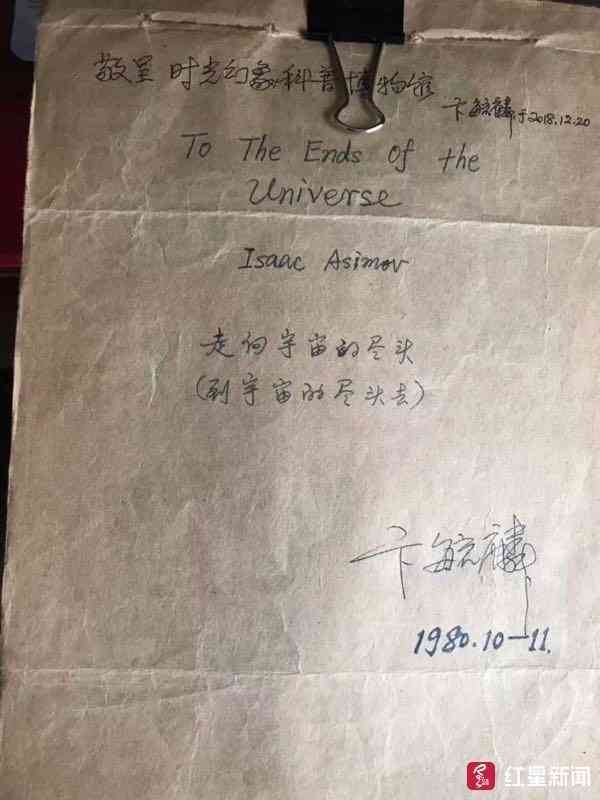 敬呈 时光幻象科普博物馆
卞毓麟于2018.12.20
To The Ends of the
Universe
Isaac Asimov
走向宇宙的尽头
(到宇宙的尽头去)
卞毓麟
1980.10-11.
红星新闻